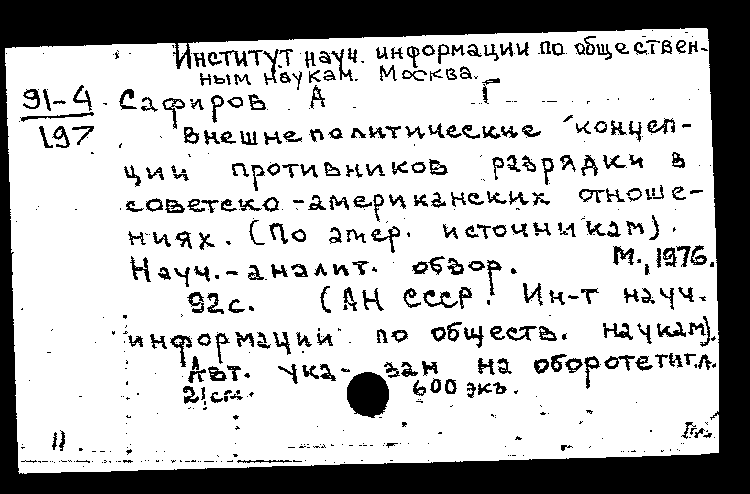 Институт науч. информации по обществен-
ным наукам. Москва.
91-4 Сафиров А Г
197 Внешнеполитические концеп-
ции противников разрядки в
советско-американских отноше-
ниях. (По амер. источникам).
Науч.-аналит. обзор. М., 1976.
92 с. (АН СССР. Ин-т науч.
информации по обществ. наукам).
Авт. ука- зан на обороте тит. л.
21 см. 600 экъ.
11